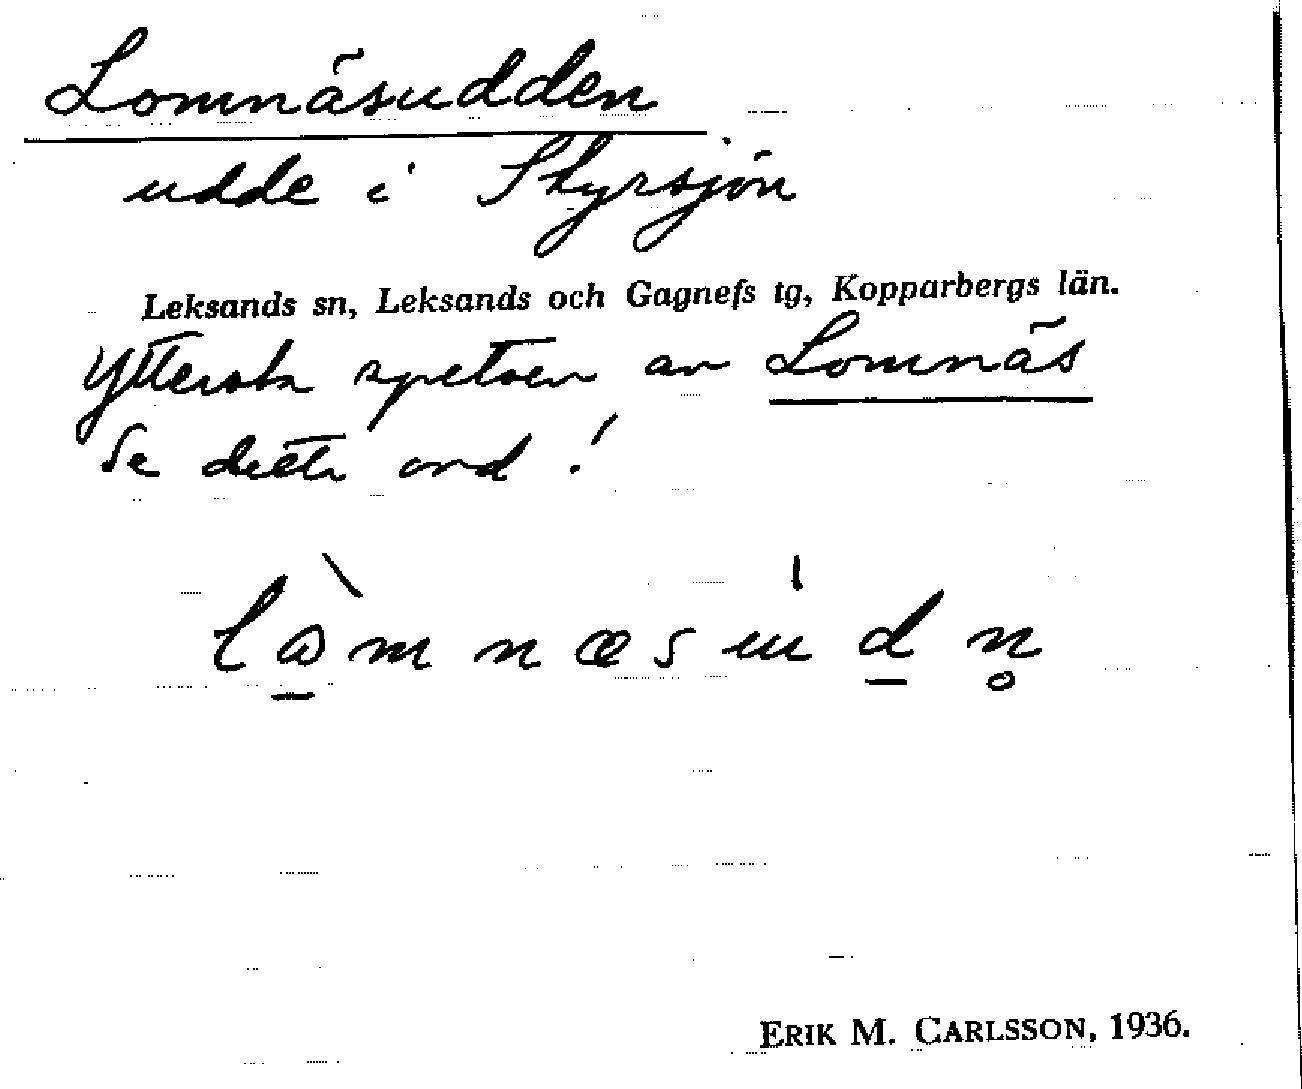 Lomnäsudden
udde i Styrsjön
Leksands sn, Leksands och Gagnefs tg, Kopparbergs län.
Yttersta spetsen av Lomnäs
Se detta ord!
ERIK M. CARLSSON, 1936.